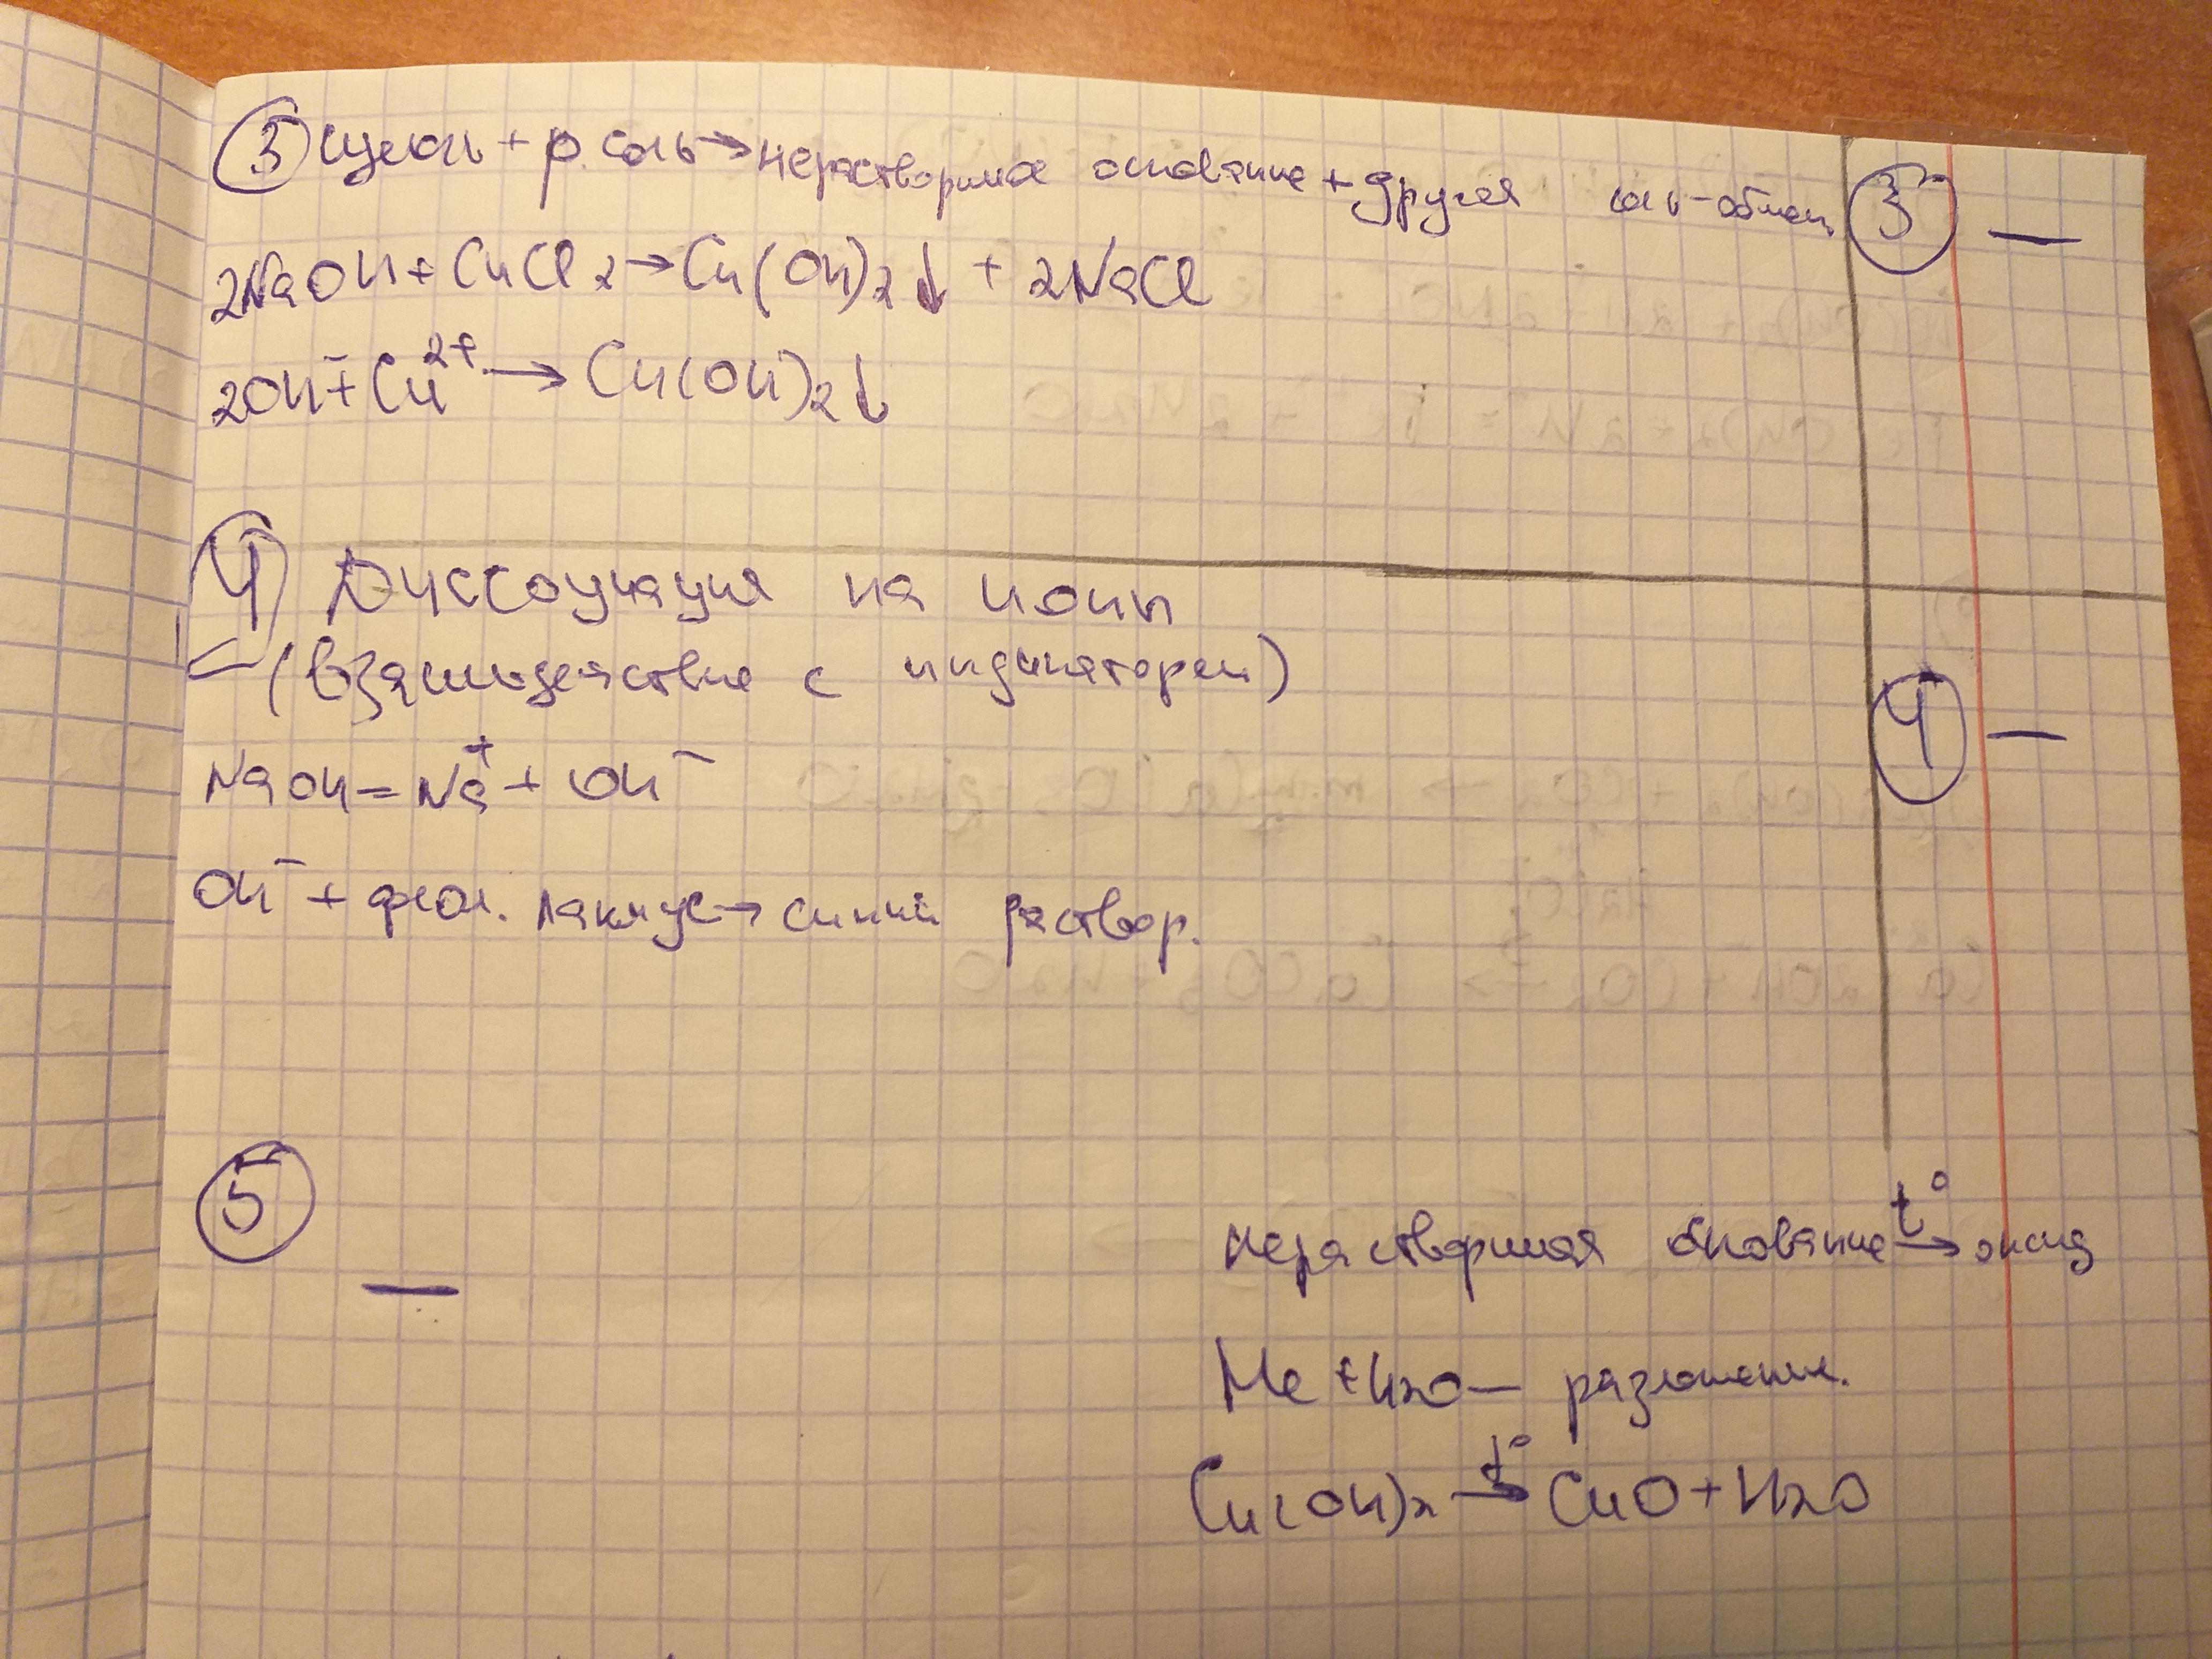 ③ щелочь + р. соль → нерастворимое основание + другая соль - обмен ③ —
2NaOH + CuCl₂ → Cu(OH)₂↓ + 2NaCl
2OH⁻ + Cu²⁺ → Cu(OH)₂↓
④ Диссоциация на ионы
(взаимодействие с индикатором) ④ —
NaOH = Na⁺ + OH⁻
OH⁻ + фиол. лакмус → синий раствор.
⑤ —
нерастворимая основание t° → оксид
Me + H₂O — разложение.
Cu(OH)₂ t° → CuO + H₂O